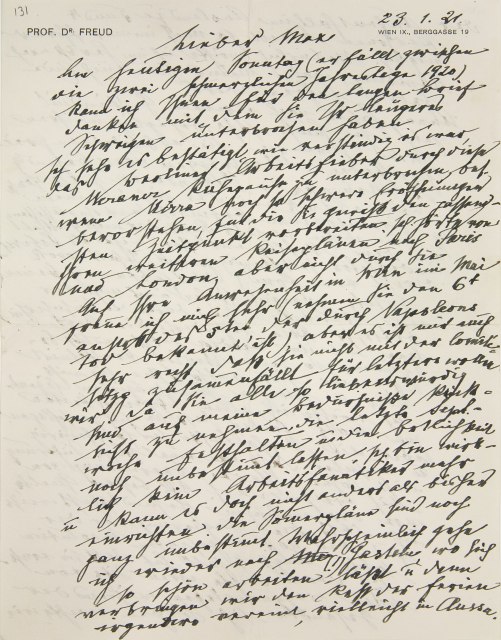 131
PROF. Dᴿ FREUD
23. 1. 21.
WIEN IX., BERGGASSE 19
Lieber Max
Am heutigen Sonntag (er fällt zwischen
die zwei schmerzlichen Jahrestage 1920)
kann ich Ihnen für den langen Brief
danken mit dem Sie Ihr längeres
Schweigen unterbrochen haben
Ich sehe es bestätigt, wie verständig es war
das Berliner Arbeitsfieber durch diese
Meraner Ruhepause zu unterbrechen, bes.
wenn Mirra noch so schwere
bevorstehen, für die Sie gewiß den passend-
sten Zeitpunkt vorbereiten. Ich hörte von
Ihren weiteren Reiseplänen nach Paris
und London, aber nicht durch Sie
Auf Ihre Anwesenheit in Wien im Mai
freue ich mich sehr nehmen Sie den 6ᵗ
anstatt des 5ten der durch Napoleons
Tod bekannt ist, aber es ist mir auch
sehr recht daß sie nicht mit der Comité-
sitzg zusamenfällt Für letztere wollen
wir da Sie alle so liebenswürdig
sind auf meine Bedürfnisse Rück-
sicht zu nehmen die letzte Sept.-
woche festhalten u die Örtlichkeit
noch unbestimt lassen Ich bin wirk-
lich kein Arbeitsfanatiker mehr
u kann es doch nicht anders als bisher
einrichten Die Somerpläne sind noch
ganz unbestimt. Wahrscheinlich gehe
ich wieder nach Gastein wo sich
so schön arbeiten läßt u dann
verbringen wir den Rest der Ferien
irgendwo vereint, vielleicht in Aussee